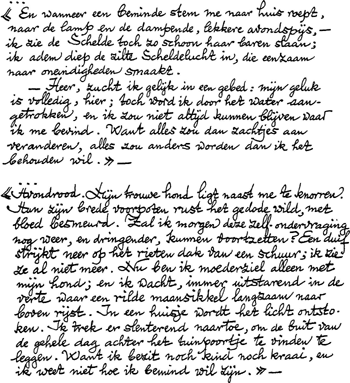 « En wanneer een beminde stem me naar huis roept,
naar de lamp en de dampende, lekkere avondspijs, —
ik zie de Schelde toch zo schoon haar baren slaan;
ik adem diep de zilte Scheldelucht in, die eenzaam
naar oneindigheden smaakt.
— Heer, zucht ik gelijk in een gebed: mijn geluk
is volledig, hier; toch word ik door het water aan-
getrokken, en ik zou niet altijd kunnen blijven waar
ik me bevind. Want alles zou dan zachtjes aan
veranderen, alles zou anders worden dan ik het
behouden wil. » —
« Avondrood. Mijn trouwe hond ligt naast me te knorren.
Aan zijn brede voorpoten rust het gedode wild, met
bloed besmeurd. Zal ik morgen deze zelf-ondervraging
nog weer, en dringender, kunnen voortzetten? Een duif
strijkt neer op het rieten dak van een schuur; ik zie
ze al niet meer. Nu ben ik moederziel alleen met
mijn hond; en ik wacht, immer uitstarend in de
verte waar een rilde maansikkel langzaam naar
boven rijst. In een huisje wordt het licht ontsto-
ken. Ik trek er slenterend naartoe, om de buit van
de gehele dag achter het tuinpoortje te vinden te
leggen. Want ik bezit noch kind noch kraai, en
ik weet niet hoe ik bemind wil zijn. » —